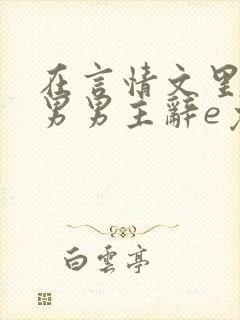 在言情文里
男男主辭e
白雲亭